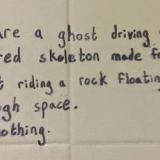 are a ghost driving
red skeleton made fr
t riding a rock floatin
ugh space.
othing.